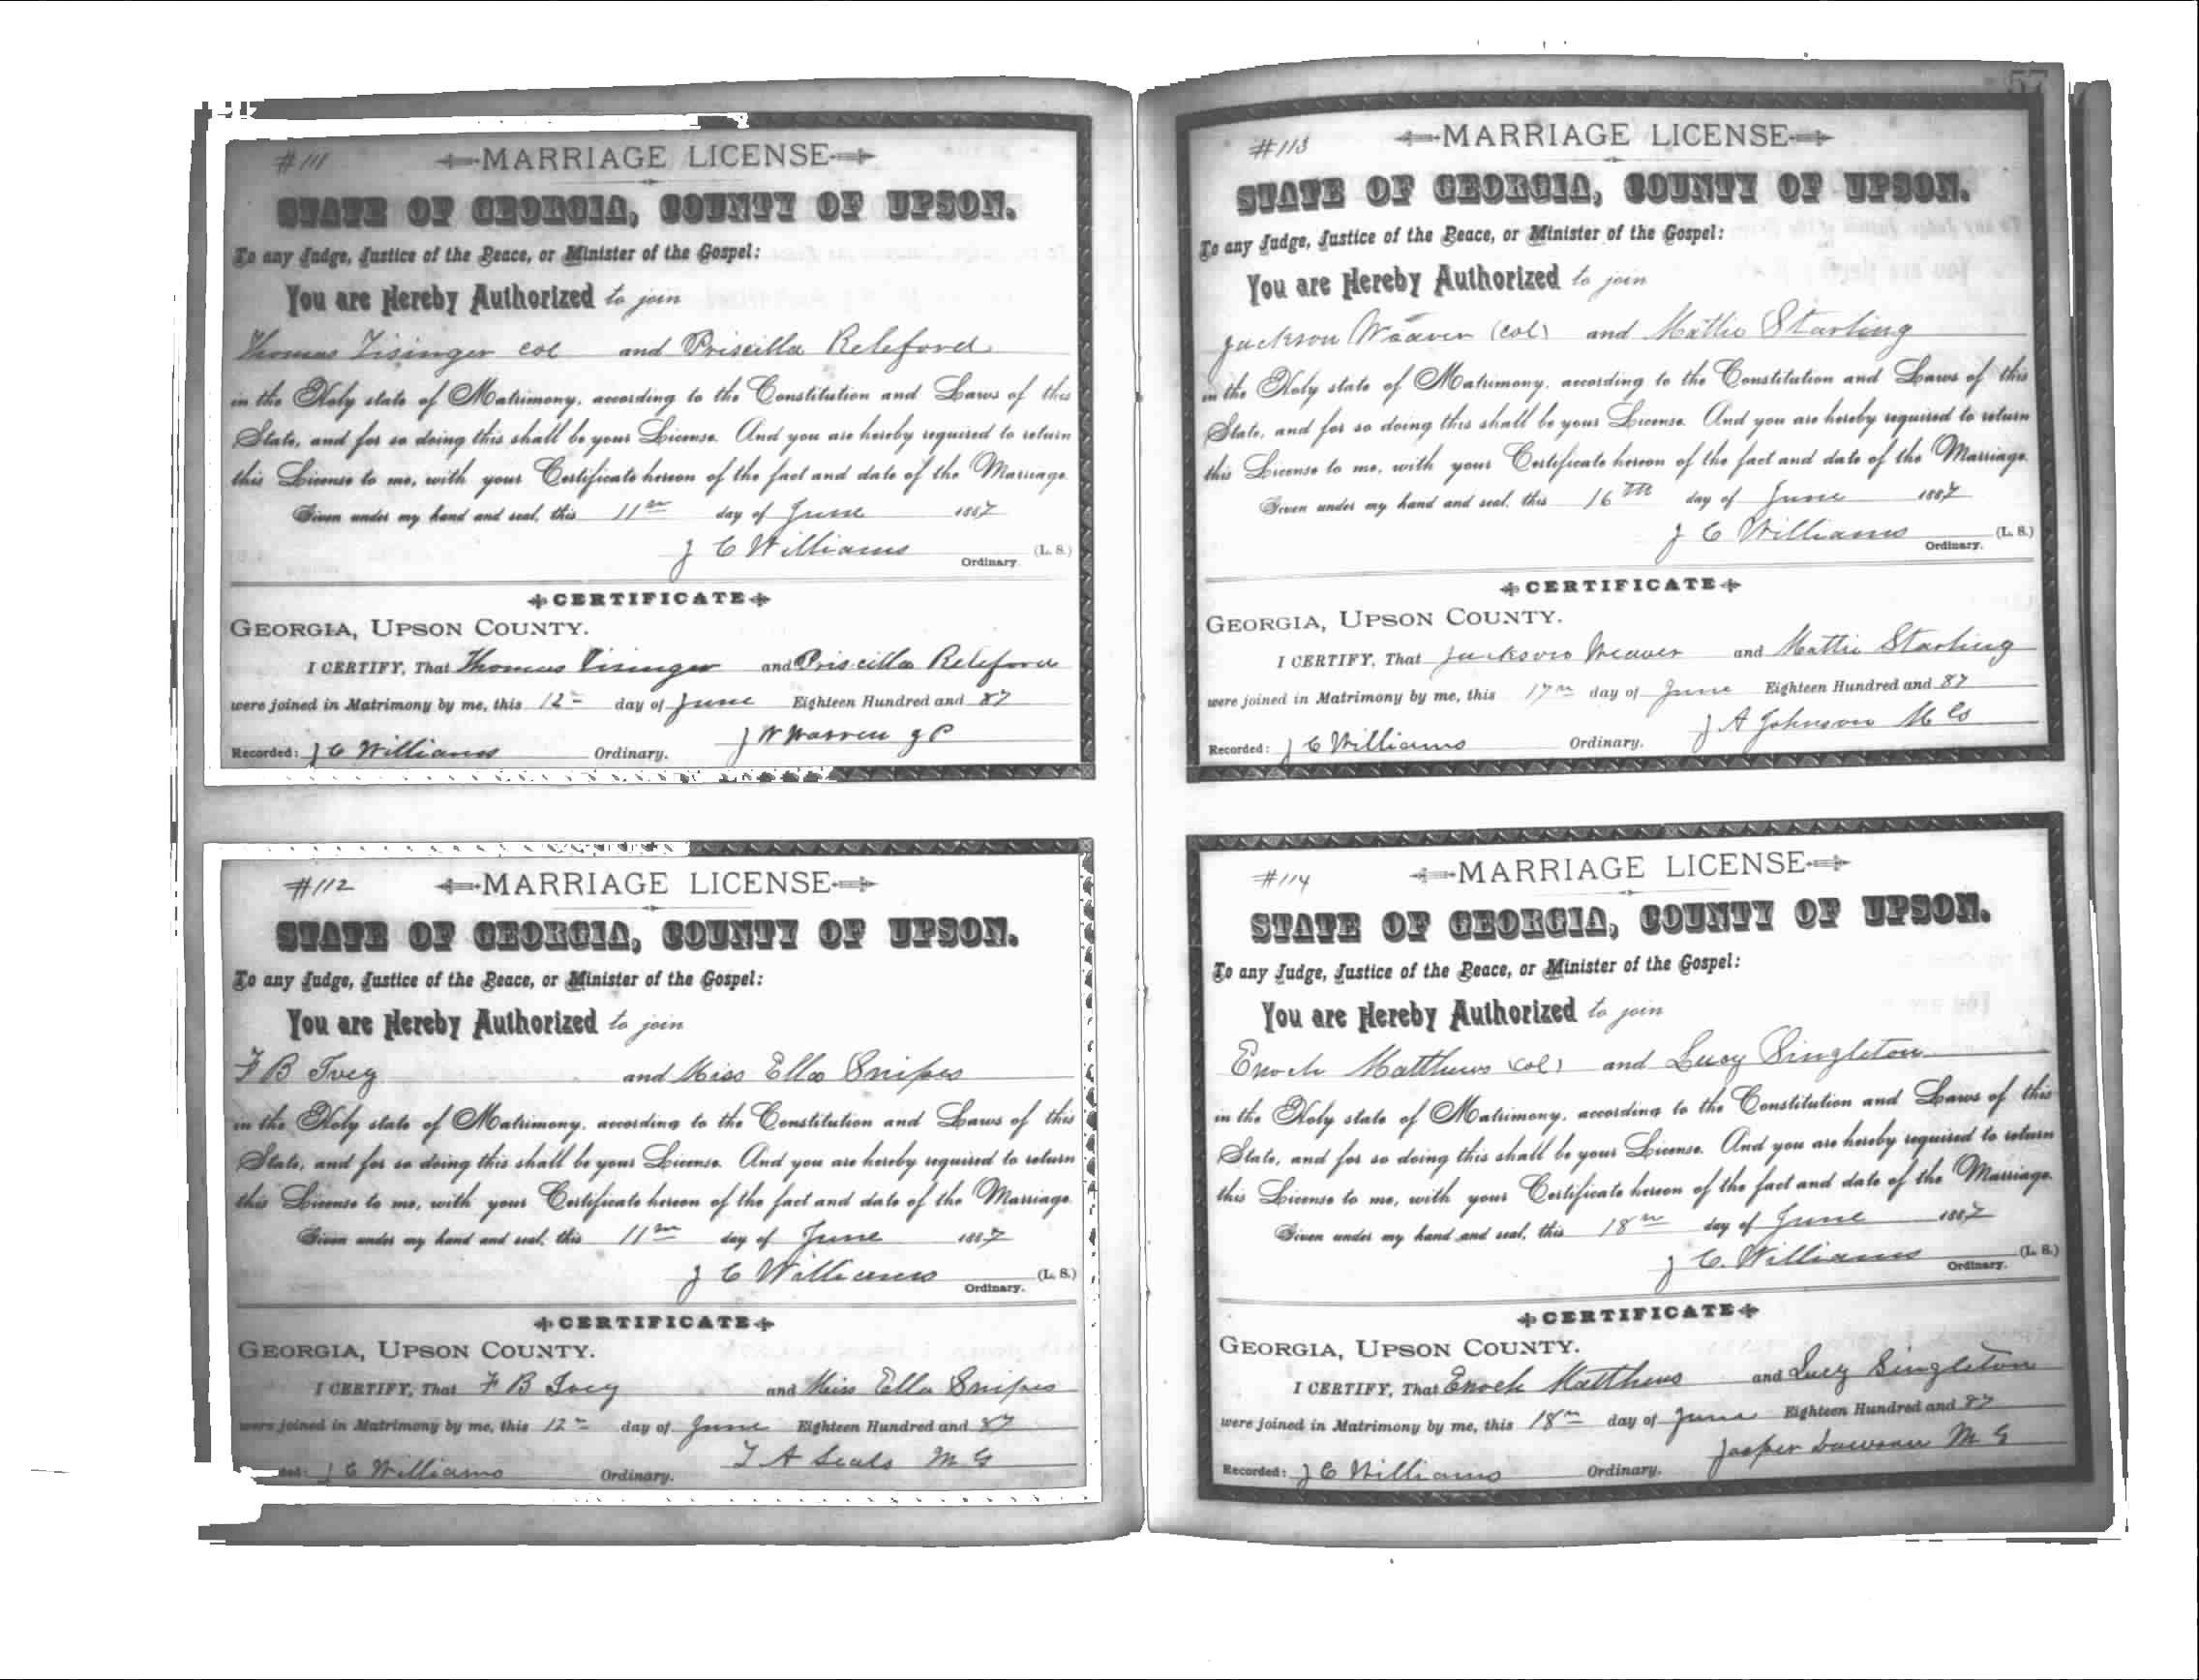 #111 MARRIAGE LICENSE
STATE OF GEORGIA, COUNTY OF UPSON.
To any Judge, Justice of the Peace, or Minister of the Gospel:
You are Hereby Authorized to join
Thomas Tisinger col and Priscilla Releford
in the Holy state of Matrimony, according to the Constitution and Laws of this
State, and for so doing this shall be your License. And you are hereby required to return
this License to me, with your Certificate hereon of the fact and date of the Marriage.
Given under my hand and seal, this 11th day of June 1887
J C Williams (L. S.)
Ordinary.
CERTIFICATE
GEORGIA, UPSON COUNTY.
I CERTIFY, That Thomas Tisinger and Priscilla Releford
were joined in Matrimony by me, this 12th day of June Eighteen Hundred and 87
J W Warren J P
Recorded: J C Williams Ordinary.
#112 MARRIAGE LICENSE
STATE OF GEORGIA, COUNTY OF UPSON.
To any Judge, Justice of the Peace, or Minister of the Gospel:
You are Hereby Authorized to join
F B Ivey and Miss Ella Snipes
in the Holy state of Matrimony, according to the Constitution and Laws of this
State, and for so doing this shall be your License. And you are hereby required to return
this License to me, with your Certificate hereon of the fact and date of the Marriage.
Given under my hand and seal, this 11th day of June 1887
J C Williams (L. S.)
Ordinary.
CERTIFICATE
GEORGIA, UPSON COUNTY.
I CERTIFY, That F B Ivey and Miss Ella Snipes
were joined in Matrimony by me, this 12th day of June Eighteen Hundred and 87
T A Seals M G
J C Williams Ordinary.
57
#113 MARRIAGE LICENSE
STATE OF GEORGIA, COUNTY OF UPSON.
To any Judge, Justice of the Peace, or Minister of the Gospel:
You are Hereby Authorized to join
Jackson Weaver (col) and Mattie Starling
in the Holy state of Matrimony, according to the Constitution and Laws of this
State, and for so doing this shall be your License. And you are hereby required to return
this License to me, with your Certificate hereon of the fact and date of the Marriage.
Given under my hand and seal, this 16th day of June 1887
J C Williams (L. S.)
Ordinary.
CERTIFICATE
GEORGIA, UPSON COUNTY.
I CERTIFY, That Jackson Weaver and Mattie Starling
were joined in Matrimony by me, this 17th day of June Eighteen Hundred and 87
J A Johnson M G
Recorded: J C Williams Ordinary.
#114 MARRIAGE LICENSE
STATE OF GEORGIA, COUNTY OF UPSON.
To any Judge, Justice of the Peace, or Minister of the Gospel:
You are Hereby Authorized to join
Enoch Matthews (col) and Lucy Singleton
in the Holy state of Matrimony, according to the Constitution and Laws of this
State, and for so doing this shall be your License. And you are hereby required to return
this License to me, with your Certificate hereon of the fact and date of the Marriage.
Given under my hand and seal, this 18th day of June 1887
J C. Williams (L. S.)
Ordinary.
CERTIFICATE
GEORGIA, UPSON COUNTY.
I CERTIFY, That Enoch Matthews and Lucy Singleton
were joined in Matrimony by me, this 18th day of June Eighteen Hundred and 87
Jasper Dawson M G
Recorded: J C Williams Ordinary.